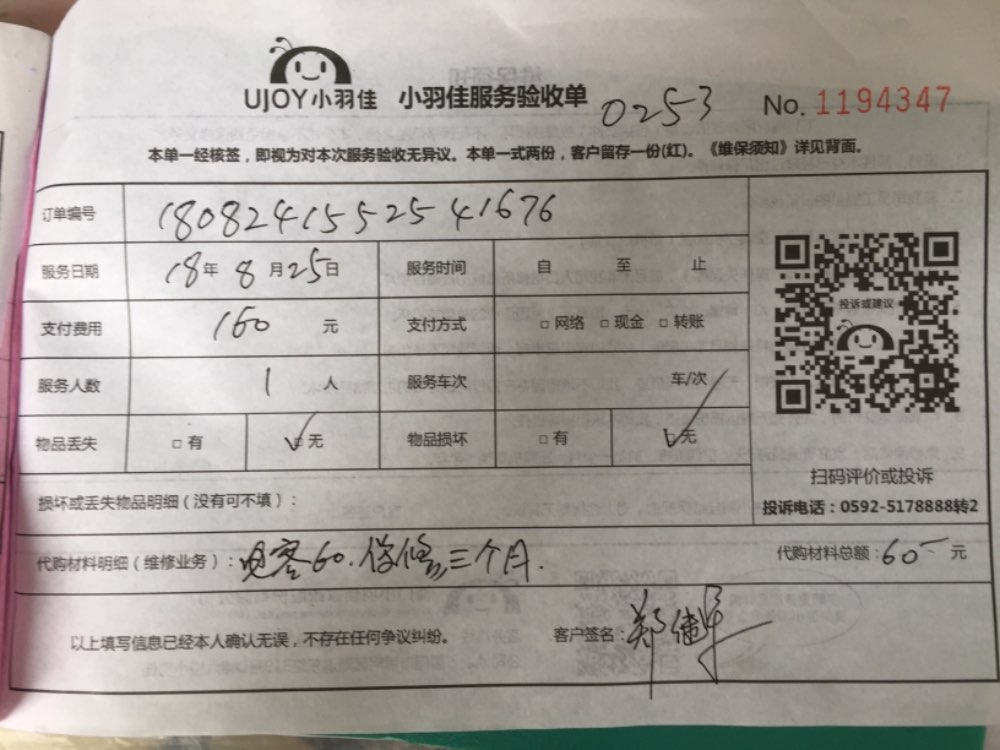 UJOY小羽佳 小羽佳服务验收单 0253 No. 1194347
本单一经核签，即视为对本次服务验收无异议。本单一式两份，客户留存一份(红)。《维保须知》详见背面。
订单编号 1808241552541676
服务日期 18年 8月25日 服务时间 自 至 止
支付费用 160 元 支付方式 □网络 □现金 □转账
投诉或建议
服务人数 1 人 服务车次 车/次
物品丢失 □有 ☑无 物品损坏 □有 ☑无
扫码评价或投诉
损坏或丢失物品明细（没有可不填）：
投诉电话：0592-5178888转2
代购材料明细（维修业务）：电容60.保修三个月. 代购材料总额：60 元
以上填写信息已经本人确认无误，不存在任何争议纠纷。 客户签名：郑